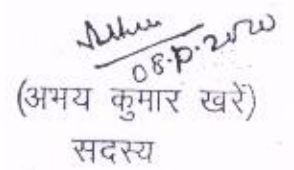 08.p.2020
(अभय कुमार खरें)
सदस्य